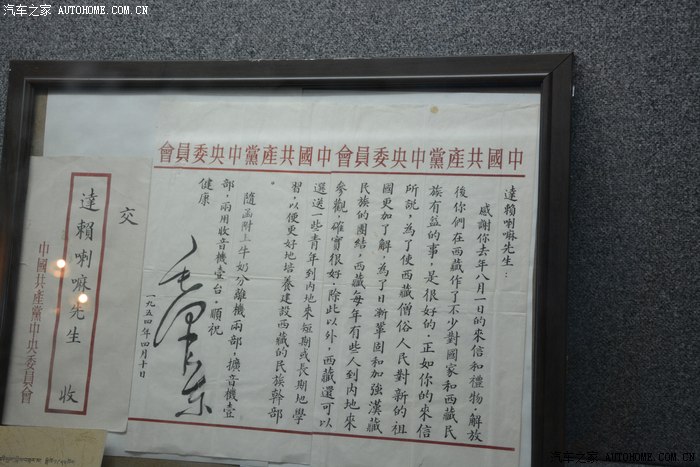 汽车之家 AUTOHOME.COM.CN
中國共產黨中央委員會中國共產黨中央委員會
達賴喇嘛先生：
感謝你去年八月一日的來信和禮物。解放
後你們在西藏作了不少對國家和西藏民
族有益的事，是很好的。正如你的來信
所說，為了使西藏僧俗人民對新的祖
國更加了解，為了日漸鞏固和加強漢藏
民族的團結，西藏每年有些人到內地來
參觀，確實很好。除此以外，西藏還可以
選送一些青年到內地來短期或長期地學
習，以便更好地培養建設西藏的民族幹部
。
隨函附上牛奶分離機兩部，擴音機壹
部，兩用收音機壹台。順祝
健康
毛澤東
一九五四年四月十日
交
達賴喇嘛先生 收
中國共產黨中央委員會
汽车之家 WWW.AUTOHOME.COM.CN